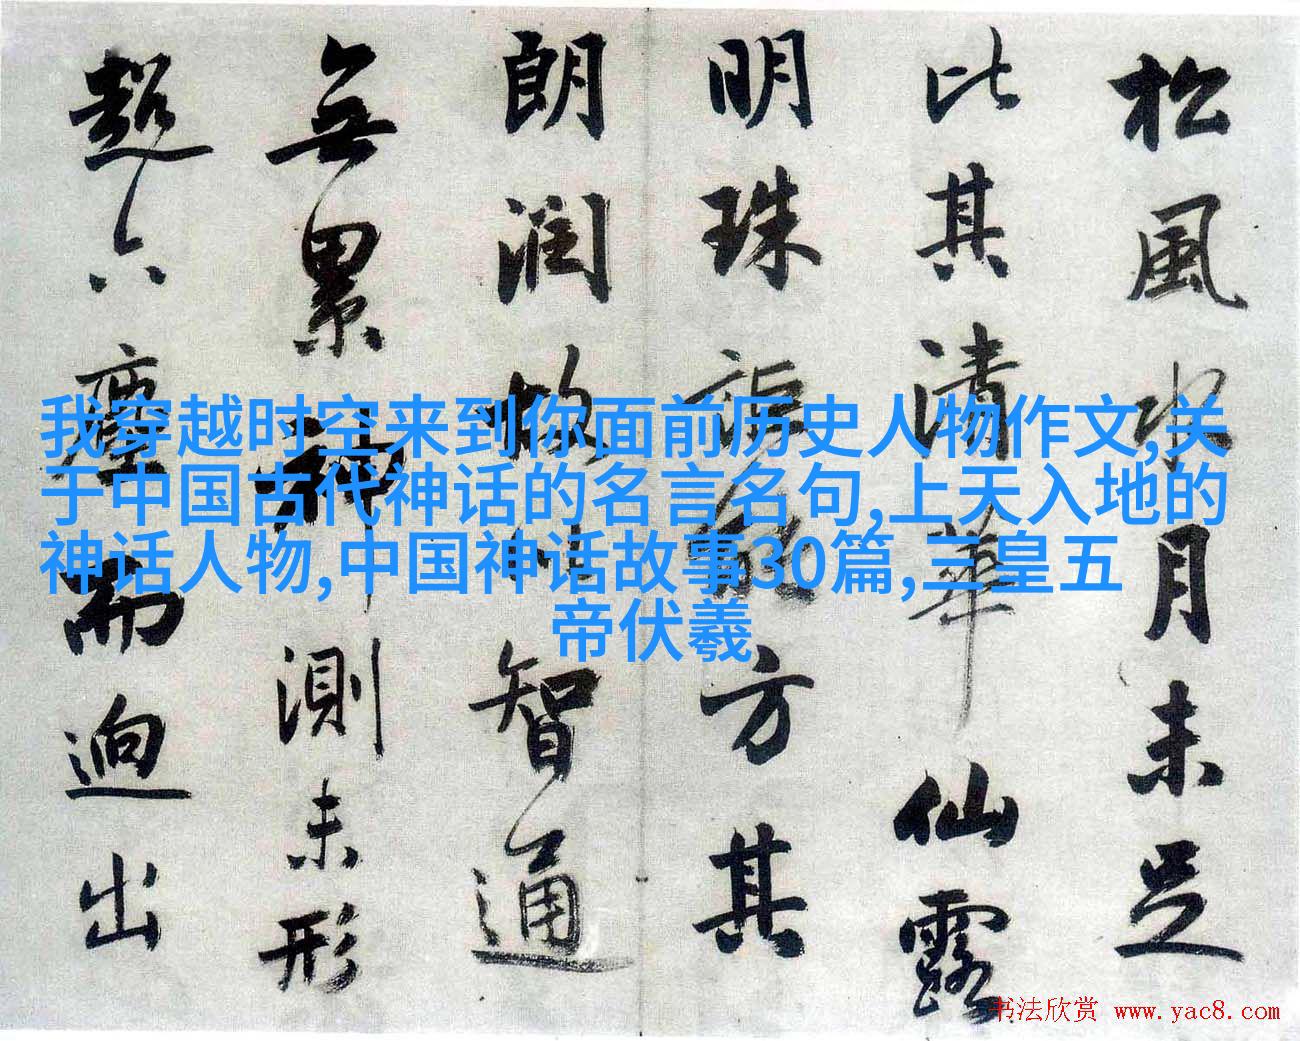 松風水月未足
比其清華仙露
明珠詎能方其
朗潤故以智通
無累神測未形
超六塵而迥出
我穿越时空来到你面前历史人物作文,关
于中国古代神话的名言名句,上天入地的
神话人物,中国神话故事30篇,三皇五
帝伏羲
书法欣赏 www.yac8.com